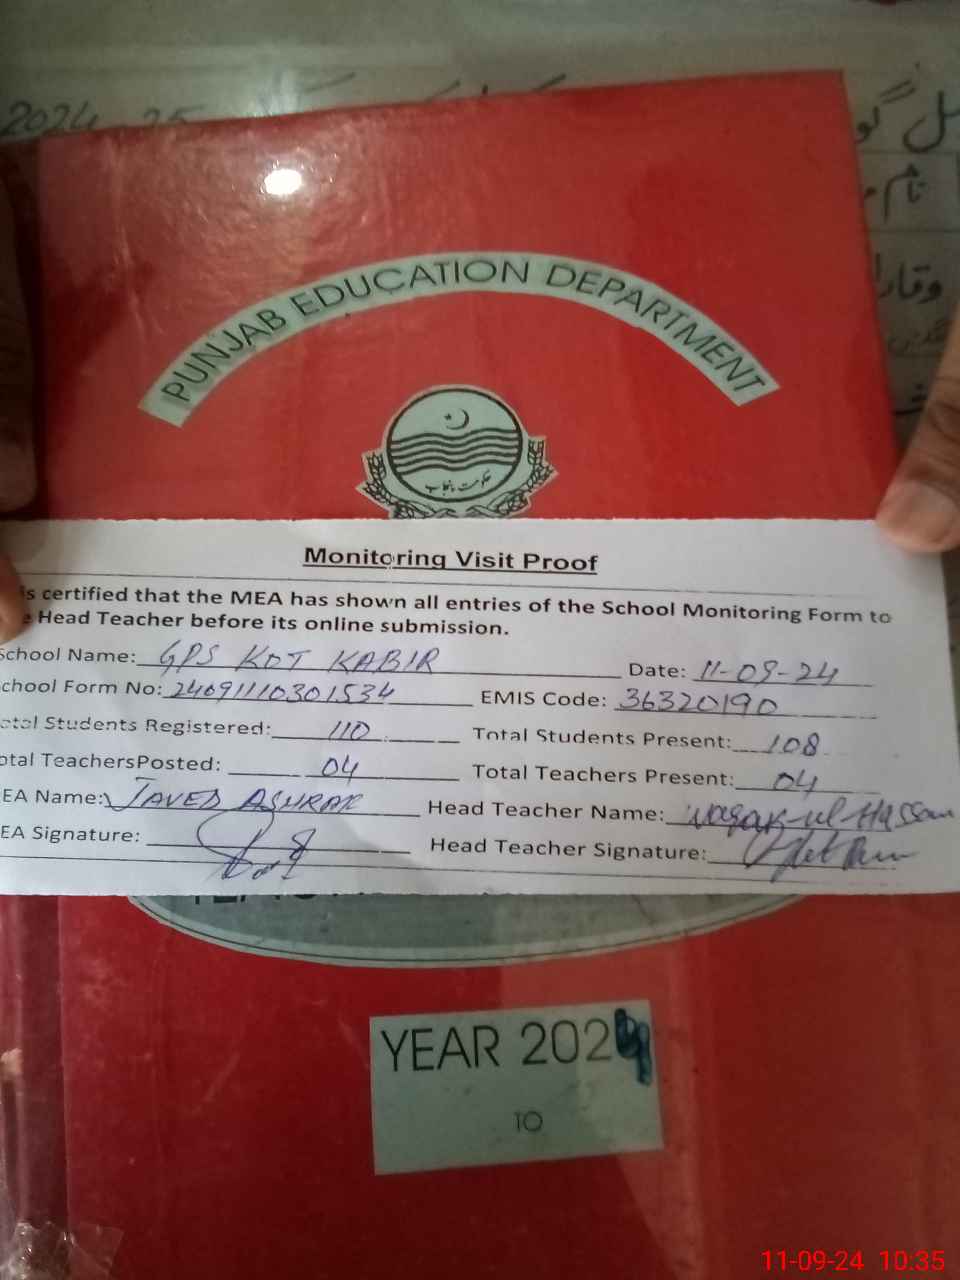 2024 25
PUNJAB EDUCATION DEPARTMENT
حکومت پنجاب
Monitoring Visit Proof
is certified that the MEA has shown all entries of the School Monitoring Form to
Head Teacher before its online submission.
School Name: GPS KOT KABIR Date: 11-09-24
chool Form No: 24091110301534 EMIS Code: 36320190
otal Students Registered: 110 Total Students Present: 108
otal TeachersPosted: 04 Total Teachers Present: 04
EA Name: JAVED ASHRAF Head Teacher Name: Waqar-ul-Hassan
EA Signature: Head Teacher Signature:
YEAR 2024
TO
11-09-24 10:35